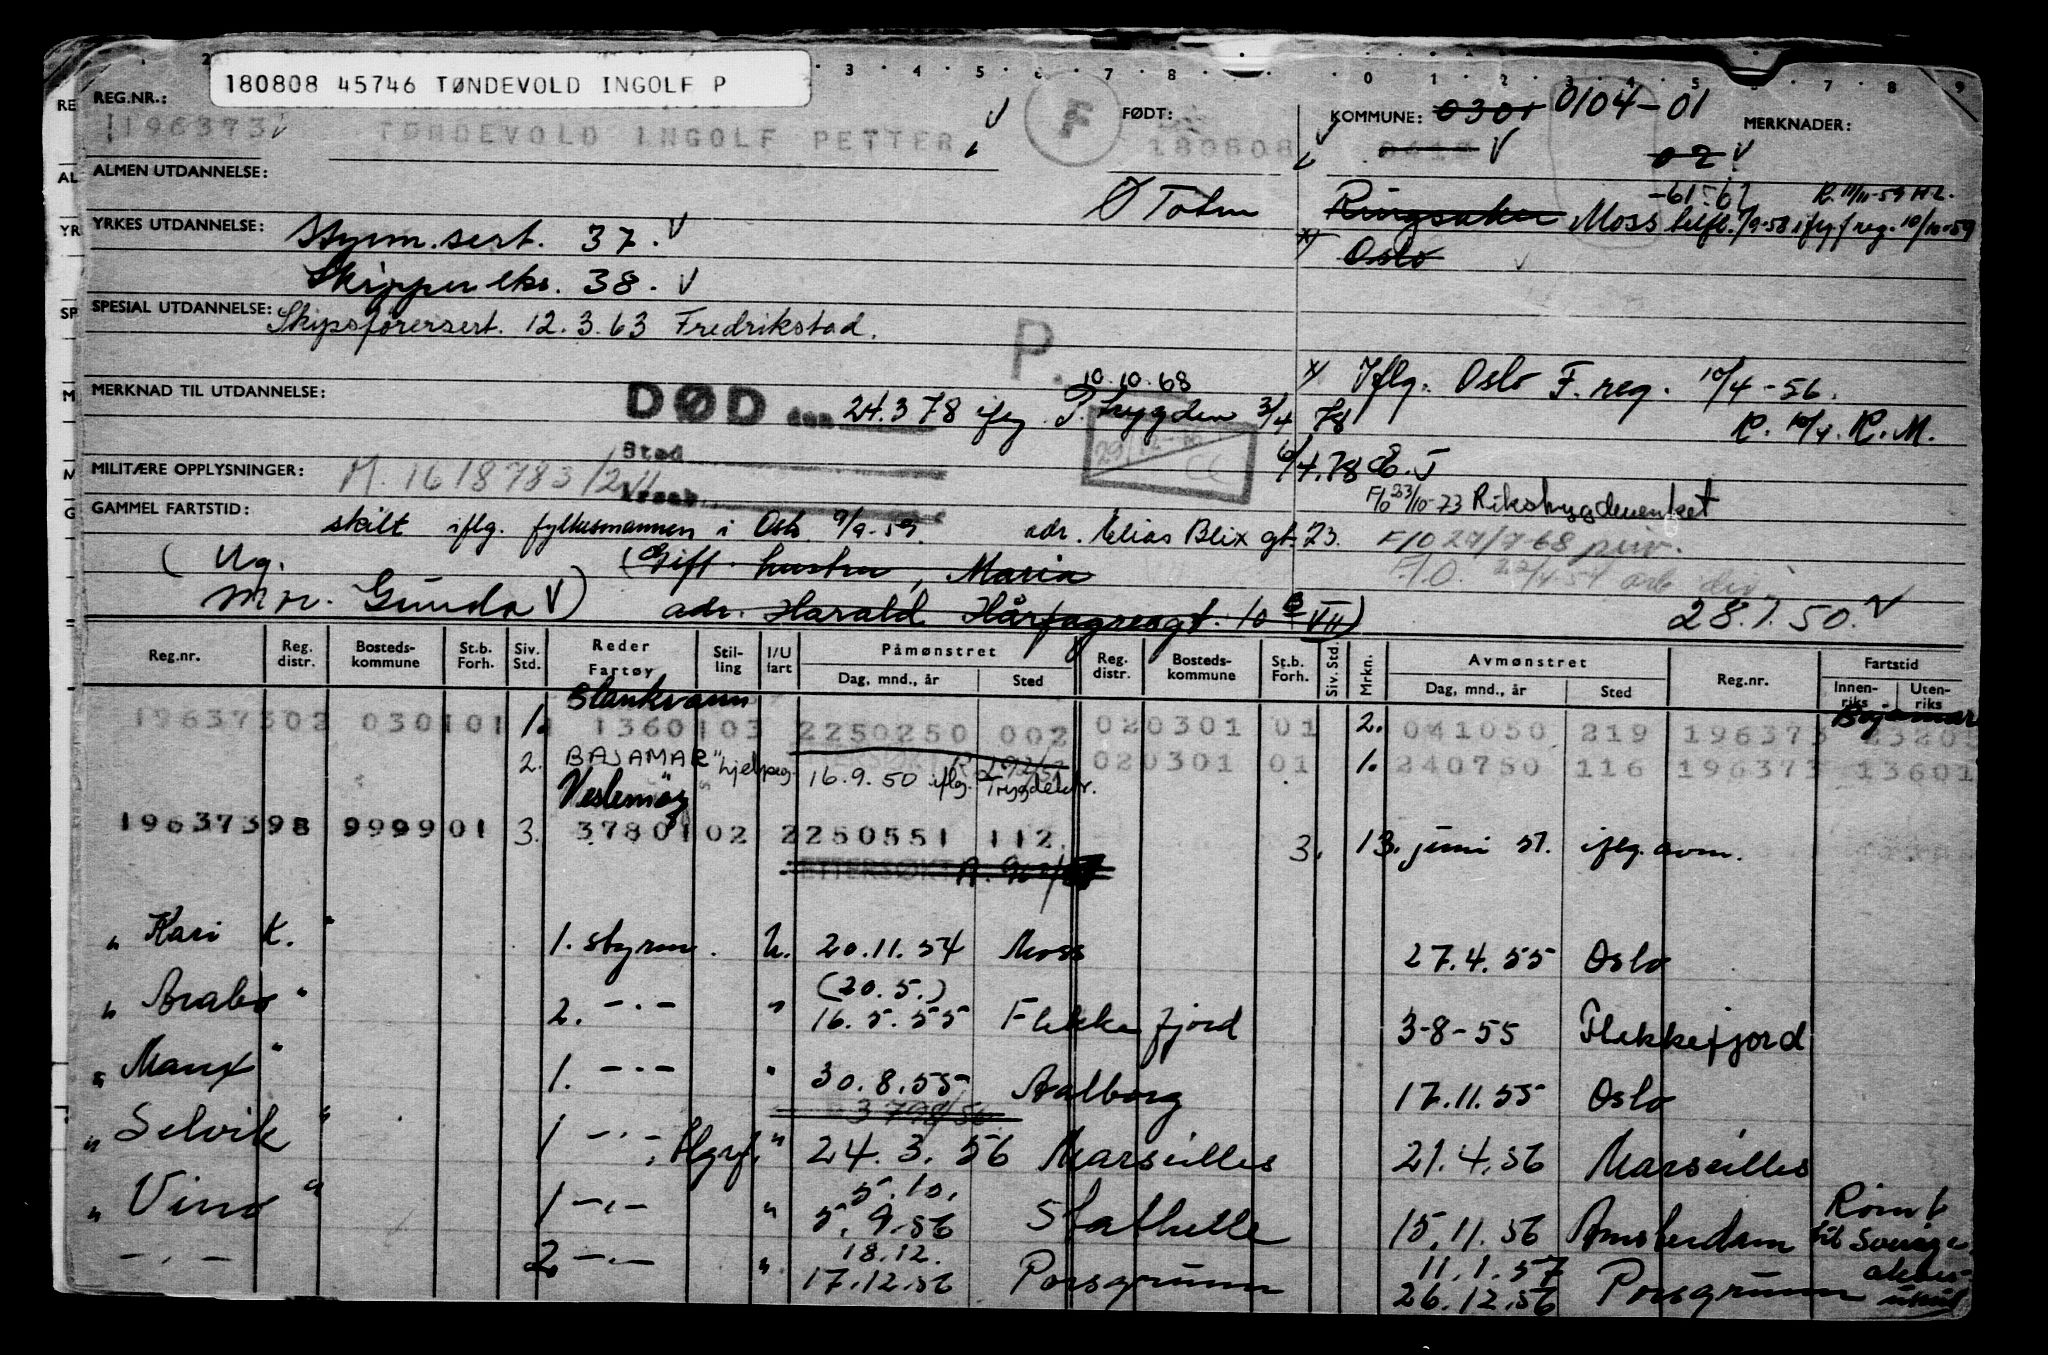 180808 45746 TØNDEVOLD INGOLF P
REG.NR.: 196373 TØNDEVOLD INGOLF PETTER F FØDT: 180808 KOMMUNE: 0301 0104-01 MERKNADER:
02
ALMEN UTDANNELSE: Ø Toten Ringsaker Moss
-61-62
YRKES UTDANNELSE: Styrm.sert. 37. Oslo
Skipper eks. 38.
SPESIAL UTDANNELSE: Skipsførersert. 12.3.63 Fredrikstad.
P.
x) Iflg. Oslo F.reg. 10/4-56.
R. 10/4. R.M.
10.10.68
MERKNAD TIL UTDANNELSE: DØD den 24.3.78 ifg P. trygden 3/4 78
Sted
6/4.78
MILITÆRE OPPLYSNINGER: M. 1618783/2
F/o 23/10-73 Rikstrygdeverket
GAMMEL FARTSTID: skilt iflg. fylkesmannen i Oslo 9/9-59. adr. Elias Blix gt. 23.
F/O 27/7-68
(Ug. (Gift. hustru, Maria
mor. Gunda) adr. Harald Hårfagresgt. 10 B VII)
28.1.50.
Reg.nr. Reg. distr. Bosteds-kommune St.b. Forh. Siv. Std. Reder Fartøy Stil-ling I/U fart Påmønstret Dag, mnd., år Sted Reg. distr. Bosteds-kommune St.b. Forh. Siv. Std. Mrkn. Avmønstret Dag, mnd., år Sted Reg.nr. Fartstid Innen-riks Uten-riks
Blankvann
Bajamar
19637302 0301 01 1. 1360103 2250250 002 020301 01 2. 041050 219 196373 23205
2. BAJAMAR" 16.9.50 iflg. 020301 01 1. 240750 116 196373 13601
Vestemøy
19637398 9999 01 3. 3780102 2250551 112 3. 13. juni 51. iflg. avm.
ETTERSØKT
" Kari K. " 1. styrm. U. 20.11.54 Moss 27.4.55 Oslo
(20.5.)
" Arabo " 2. -.- " 16.5.55 Flekkefjord 3-8-55 Flekkefjord
" Manx " 1. -.- " 30.8.55 Aalborg 17.11.55 Oslo
" Selvik " 1 -.- " 24.3.56 Marseilles 21.4.56 Marseilles
5.10.
" Vind " 1 -.- " 5.9.56 Stathelle 15.11.56 Amsterdam Rømt
til Sverige
18.12. 11.1.57
-.- 2. -.- " 17.12.56 Porsgrunn 26.12.56 Porsgrunn